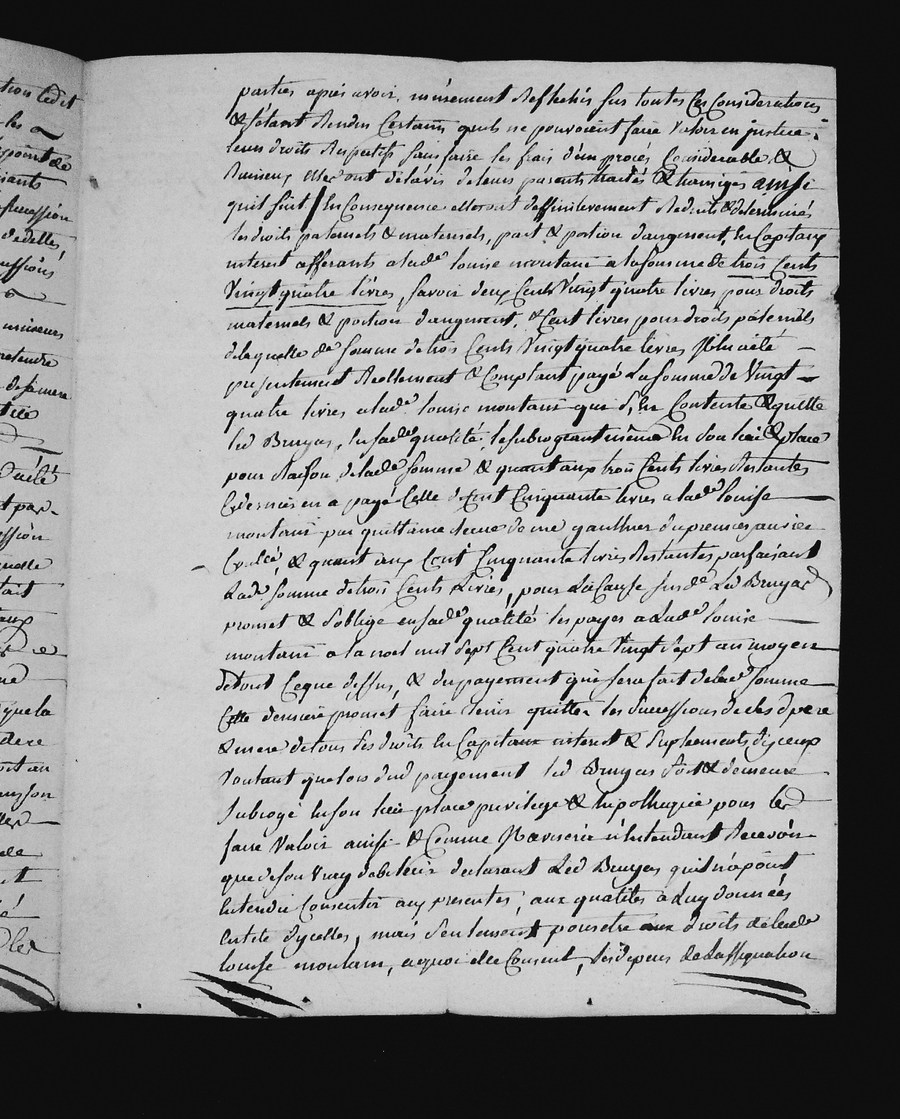 tion ledit
les
point de
succession
dedelles
mineurs
pretendre
de sa mere
parties aprés avoir, meurement Reflechis sur toutes Ces Considerations
& s'étant Rendus Certains quils ne pouvoient faire Valoir en justice
leurs droits Respectifs sans faire les frais d'un procés Considerable, &
Ruineux ont de l'avis de leurs parents traités & transigés ainsi
quil suit / En Consequence elles ont deffinitivement Reduits & determinés
les droits paternels & maternels, part & portion d'augment, En Capitaux
interest afferants a lade louise montani a la somme de trois Cents
Vingt quatre livres, savoir deux Cents Vingt quatre livres pour droits
maternels & portion d'augment, & Cent livres pour droits paternels
de laquelle de somme de trois Cents Vingt quatre livres il lui a eté
presentement Reellement & Comptant payé La somme de Vingt
quatre livres a lade louise montani qui s'en Contente & quitte
led Bruyas, En sade qualité, le subrogeant même En son lieu & place
pour Raison de lade somme & quant aux trois Cents livres Restantes
Ce dernier en a payé Celle de Cent Cinquante livres a lade louise
montani par quittance Reçue de me gauthier du premier janvier
, & quant aux Cent Cinquante livres Restantes parfaisant
Lade somme de trois Cents Livres, pour La Cause susde Led Bruyas
promet & s'oblige en sade qualité les payer a Lade louise
montani a la noel mil sept Cent quatre Vingt sept au moyen
de tout Ce que dessus, & du payement qui sera fait de lade somme
Cette derniere promet faire tenir quittes les successions de des d pere
& mere de tous ses droits En Capitaux interest & suplements d'yceux
Voulant que lors dud payement led Bruyas soit & demeure
Subrogé En son lieu place privilege & hipothéque pour les
faire Valoir ainsi & Comme il avisera n'Entendant Recevoir
que de son Vray debiteur declarant Led Bruyas quil n'a point
Entendu Consentir aux presentes, aux qualités a Luy données
En tete d'ycelles, mais seulement pour etre aux droits de lade
louise montani, a quoi elle Consent, les depens de L'assignation